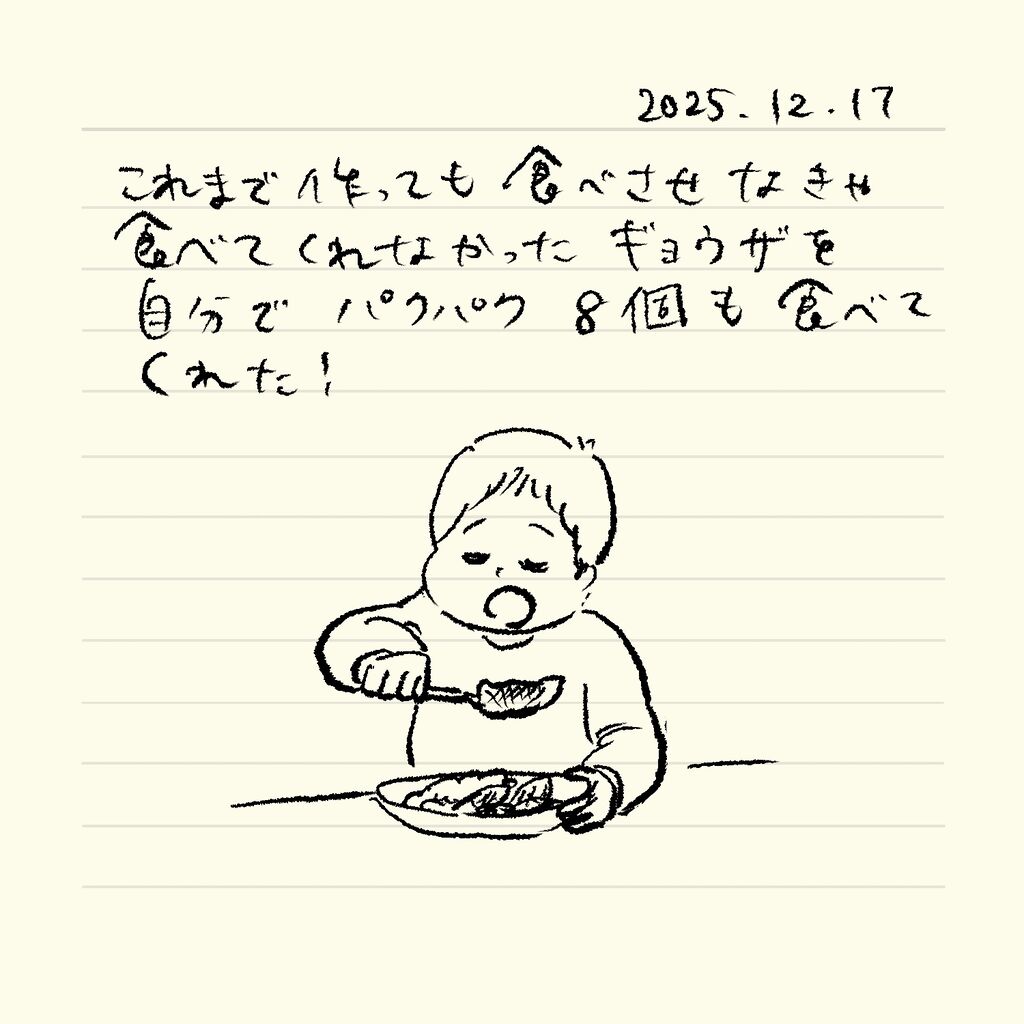 2025.12.17
これまで作っても食べさせなきゃ
食べてくれなかったギョウザを
自分でパクパク8個も食べて
くれた！